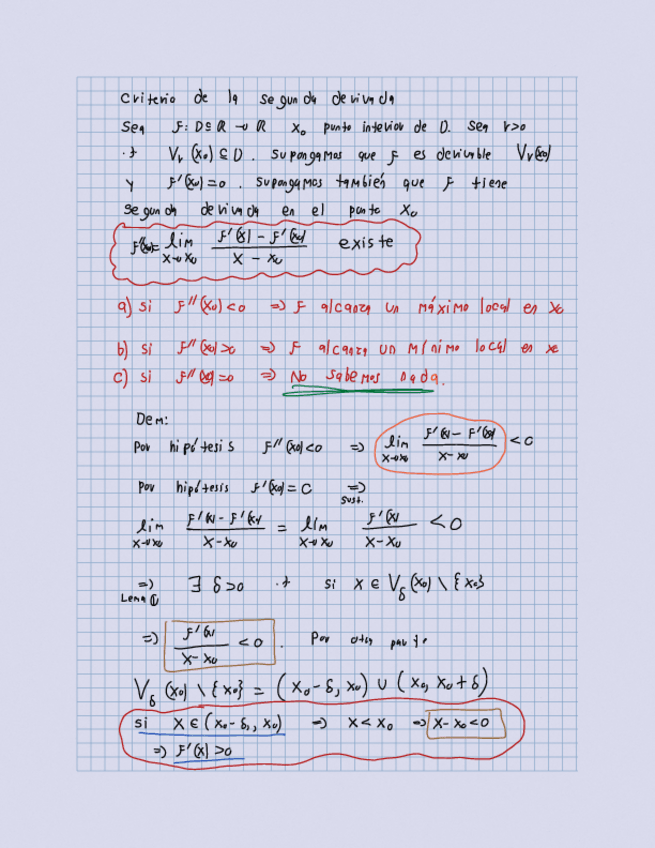 Criterio de la segunda derivada
Sea F: D⊆ℝ → ℝ x₀ punto interior de D. Sea r>0
.t Vᵣ(x₀) ⊆ D. Supongamos que F es derivable Vᵣ(x₀)
y F'(x₀)=0. Supongamos también que F tiene
segunda derivada en el punto x₀
F''(x₀)= lim x→x₀ (F'(x) - F'(x₀)) / (x - x₀) existe
a) si F''(x₀)<0 => F alcanza un máximo local en x₀
b) si F''(x₀)>0 => F alcanza un mínimo local en x₀
c) si F''(x₀)=0 => No sabemos nada.
Dem:
Por hipótesis F''(x₀)<0 => lim x→x₀ (F'(x) - F'(x₀)) / (x - x₀) < 0
Por hipótesis F'(x₀)=0 => sust.
lim x→x₀ (F'(x) - F'(x₀)) / (x - x₀) = lim x→x₀ F'(x) / (x - x₀) < 0
=> Lema ① ∃ δ>0 .t si x ∈ V_δ(x₀) \ {x₀}
=> F'(x) / (x - x₀) < 0. Por otra parte
V_δ(x₀) \ {x₀} = (x₀-δ, x₀) ∪ (x₀, x₀+δ)
si x ∈ (x₀-δ, x₀) => x < x₀ => x - x₀ < 0
=> F'(x) > 0